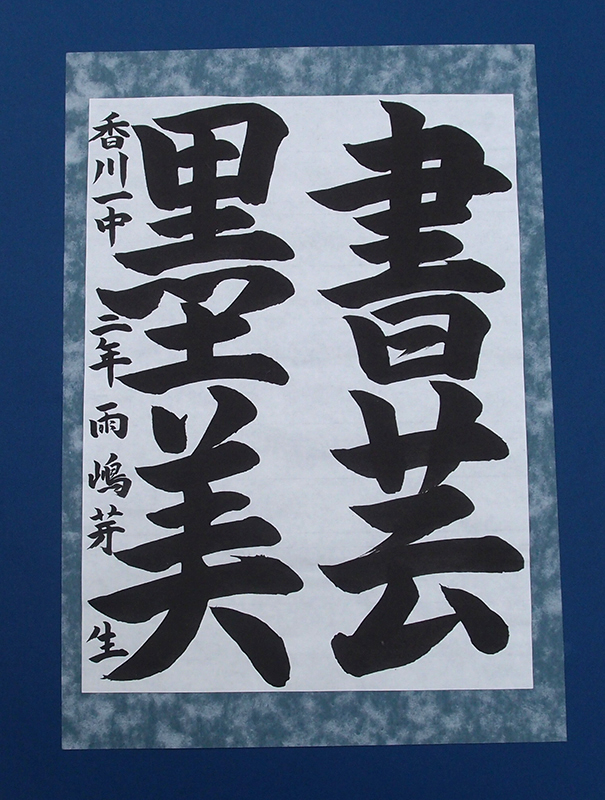 書芸
墨美
香川一中 二年 雨嶋芽生